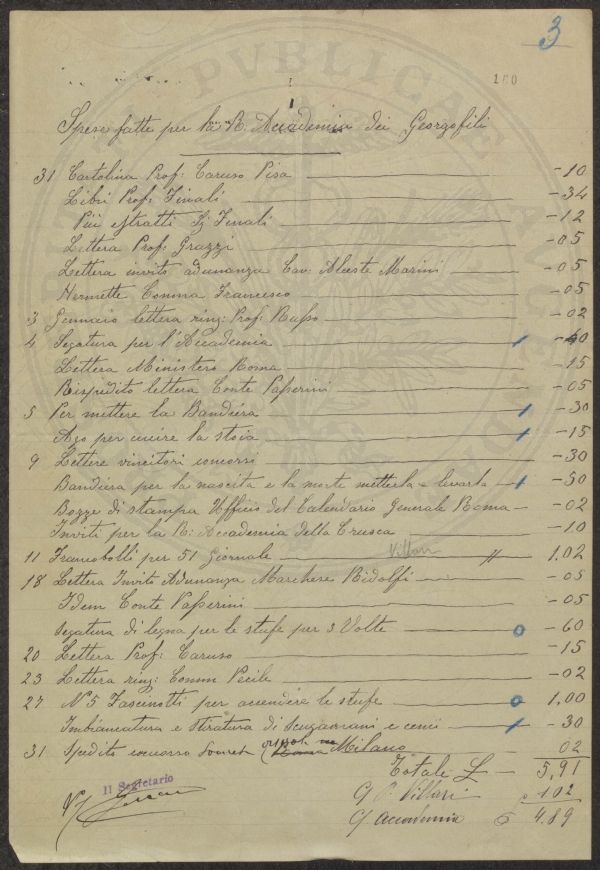 3
160
Spese fatte per la R. Accademia dei Georgofili
31 Cartolina Prof: Caruso Pisa - 10
Libri Prof: Finali - 34
Più estratti Finali - 12
Lettera Prof: Grazzi - 05
Lettera invito adunanza Cav: Alceste Marini - 05
Hermette Comma Francesco - 05
3 Gennaio lettera ring: Prof: Russo - 02
4 Segatura per l'Accademia - 40
Lettera Ministero Roma - 15
Rispedito lettera Conte Passerini - 05
5 Per mettere la Bandiera - 30
Ago per cucire la stoia - 15
9 Lettere vincitori concorsi - 30
Bandiera per la nascita e la morte metterla e levarla - 50
Bozze di stampa Ufficio del Calendario Generale Roma - 02
Inviti per la R: Accademia della Crusca - 10
11 Francobolli per 51 Giornale Villari " 1.02
18 Lettera Invito Adunanza Marchese Ridolfi - 05
Idem Conte Passerini - 05
Segatura di legna per le stufe per 3 Volte - 60
20 Lettera Prof: Caruso - 15
23 Lettera ring: Comm Pecile - 02
27 N 5 Fascinotti per accendere le stufe 1,00
Imbiancatura e stiratura di sciugamani e cenci - 30
31 Spedito concorso Milano 02
Totale L - 5,91
G P. Villari 1.02
G Accademia 4.89
Il Segretario